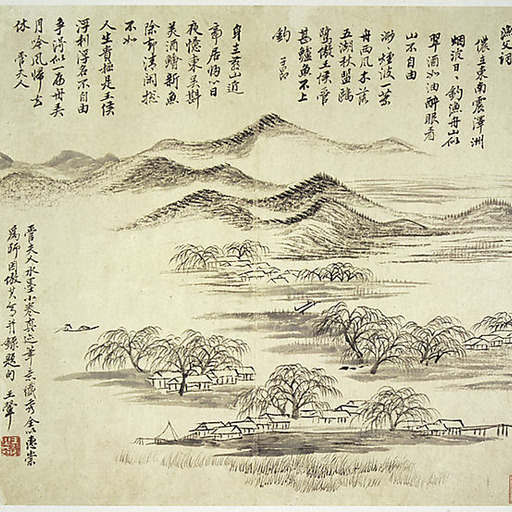 漁父詞
儂在東南震澤洲
烟波日日釣漁舟山似
翠酒如油醉眼看
山不自由
渺渺煙波一葉
舟西風木落
五湖秋盟鷗
鷺傲王侯管
甚鱸魚不上
鈎 子昂
身在燕山近
帝居歸心日
夜憶東吳斟
美酒鱠新魚
除却清閑總
不如
人生貴極是王侯
浮利浮名不自由
爭得似一扁舟弄
月吟風歸去
休 管夫人
管夫人水墨小卷真迹筆意纖秀全以惠崇
爲師因倣其 并錄題句 王翬